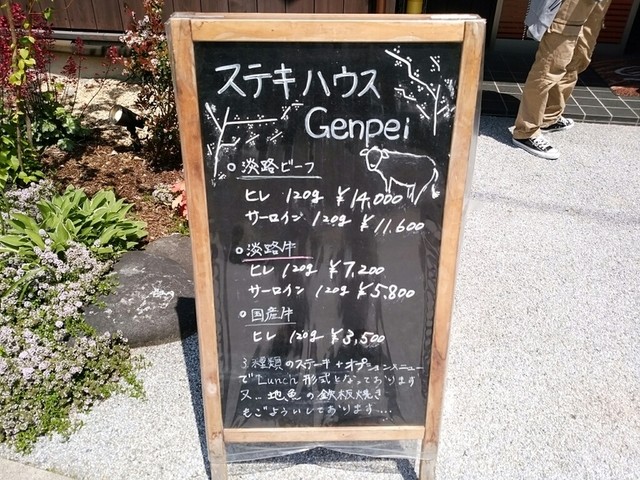 ステキハウス
Genpei
○ 淡路ビーフ
ヒレ 120g ¥14,000
サーロイン 120g ¥11,600
○ 淡路牛
ヒレ 120g ¥7,200
サーロイン 120g ¥5,800
○ 国産牛
ヒレ 120g ¥3,500
3種類のステーキ+オプションメニュー
で Lunch 形式となっております
又.. 地魚の鉄板焼き
もごよういしております...